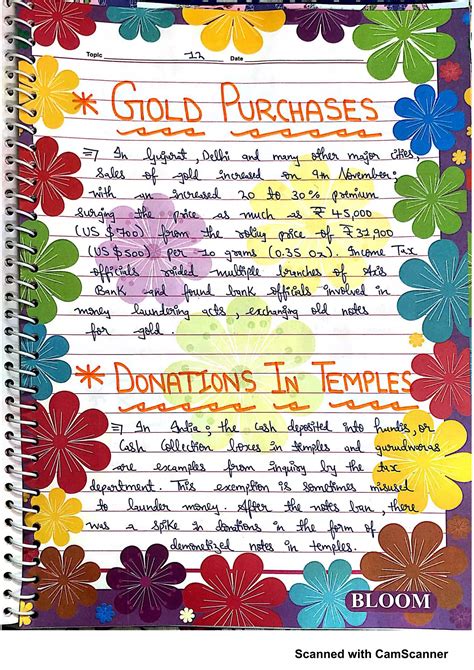 Topic 12 Date
* GOLD PURCHASES
⇒ In Gujarat, Delhi and many other major cities,
sales of gold increased on 9th November:
with an increased 20 to 30% premium
surging the price as much as ₹ 45,000
(US $700) from the roting price of ₹ 31,900
(US $500) per 10 grams (0.35 oz). Income Tax
officials raided multiple branches of Axis
Bank and found bank officials involved in
money laundering acts, exchanging old notes
for gold.
* DONATIONS IN TEMPLES
⇒ In India; the cash deposited into hundis, or
Cash Collection boxes in temples and gurudwaras
are examples from inquiry by the tax
department. This exemption is sometimes misused
to launder money. After the notes ban, there
was a spike in donations in the form of
demonitized notes in temples.
BLOOM
Scanned with CamScanner